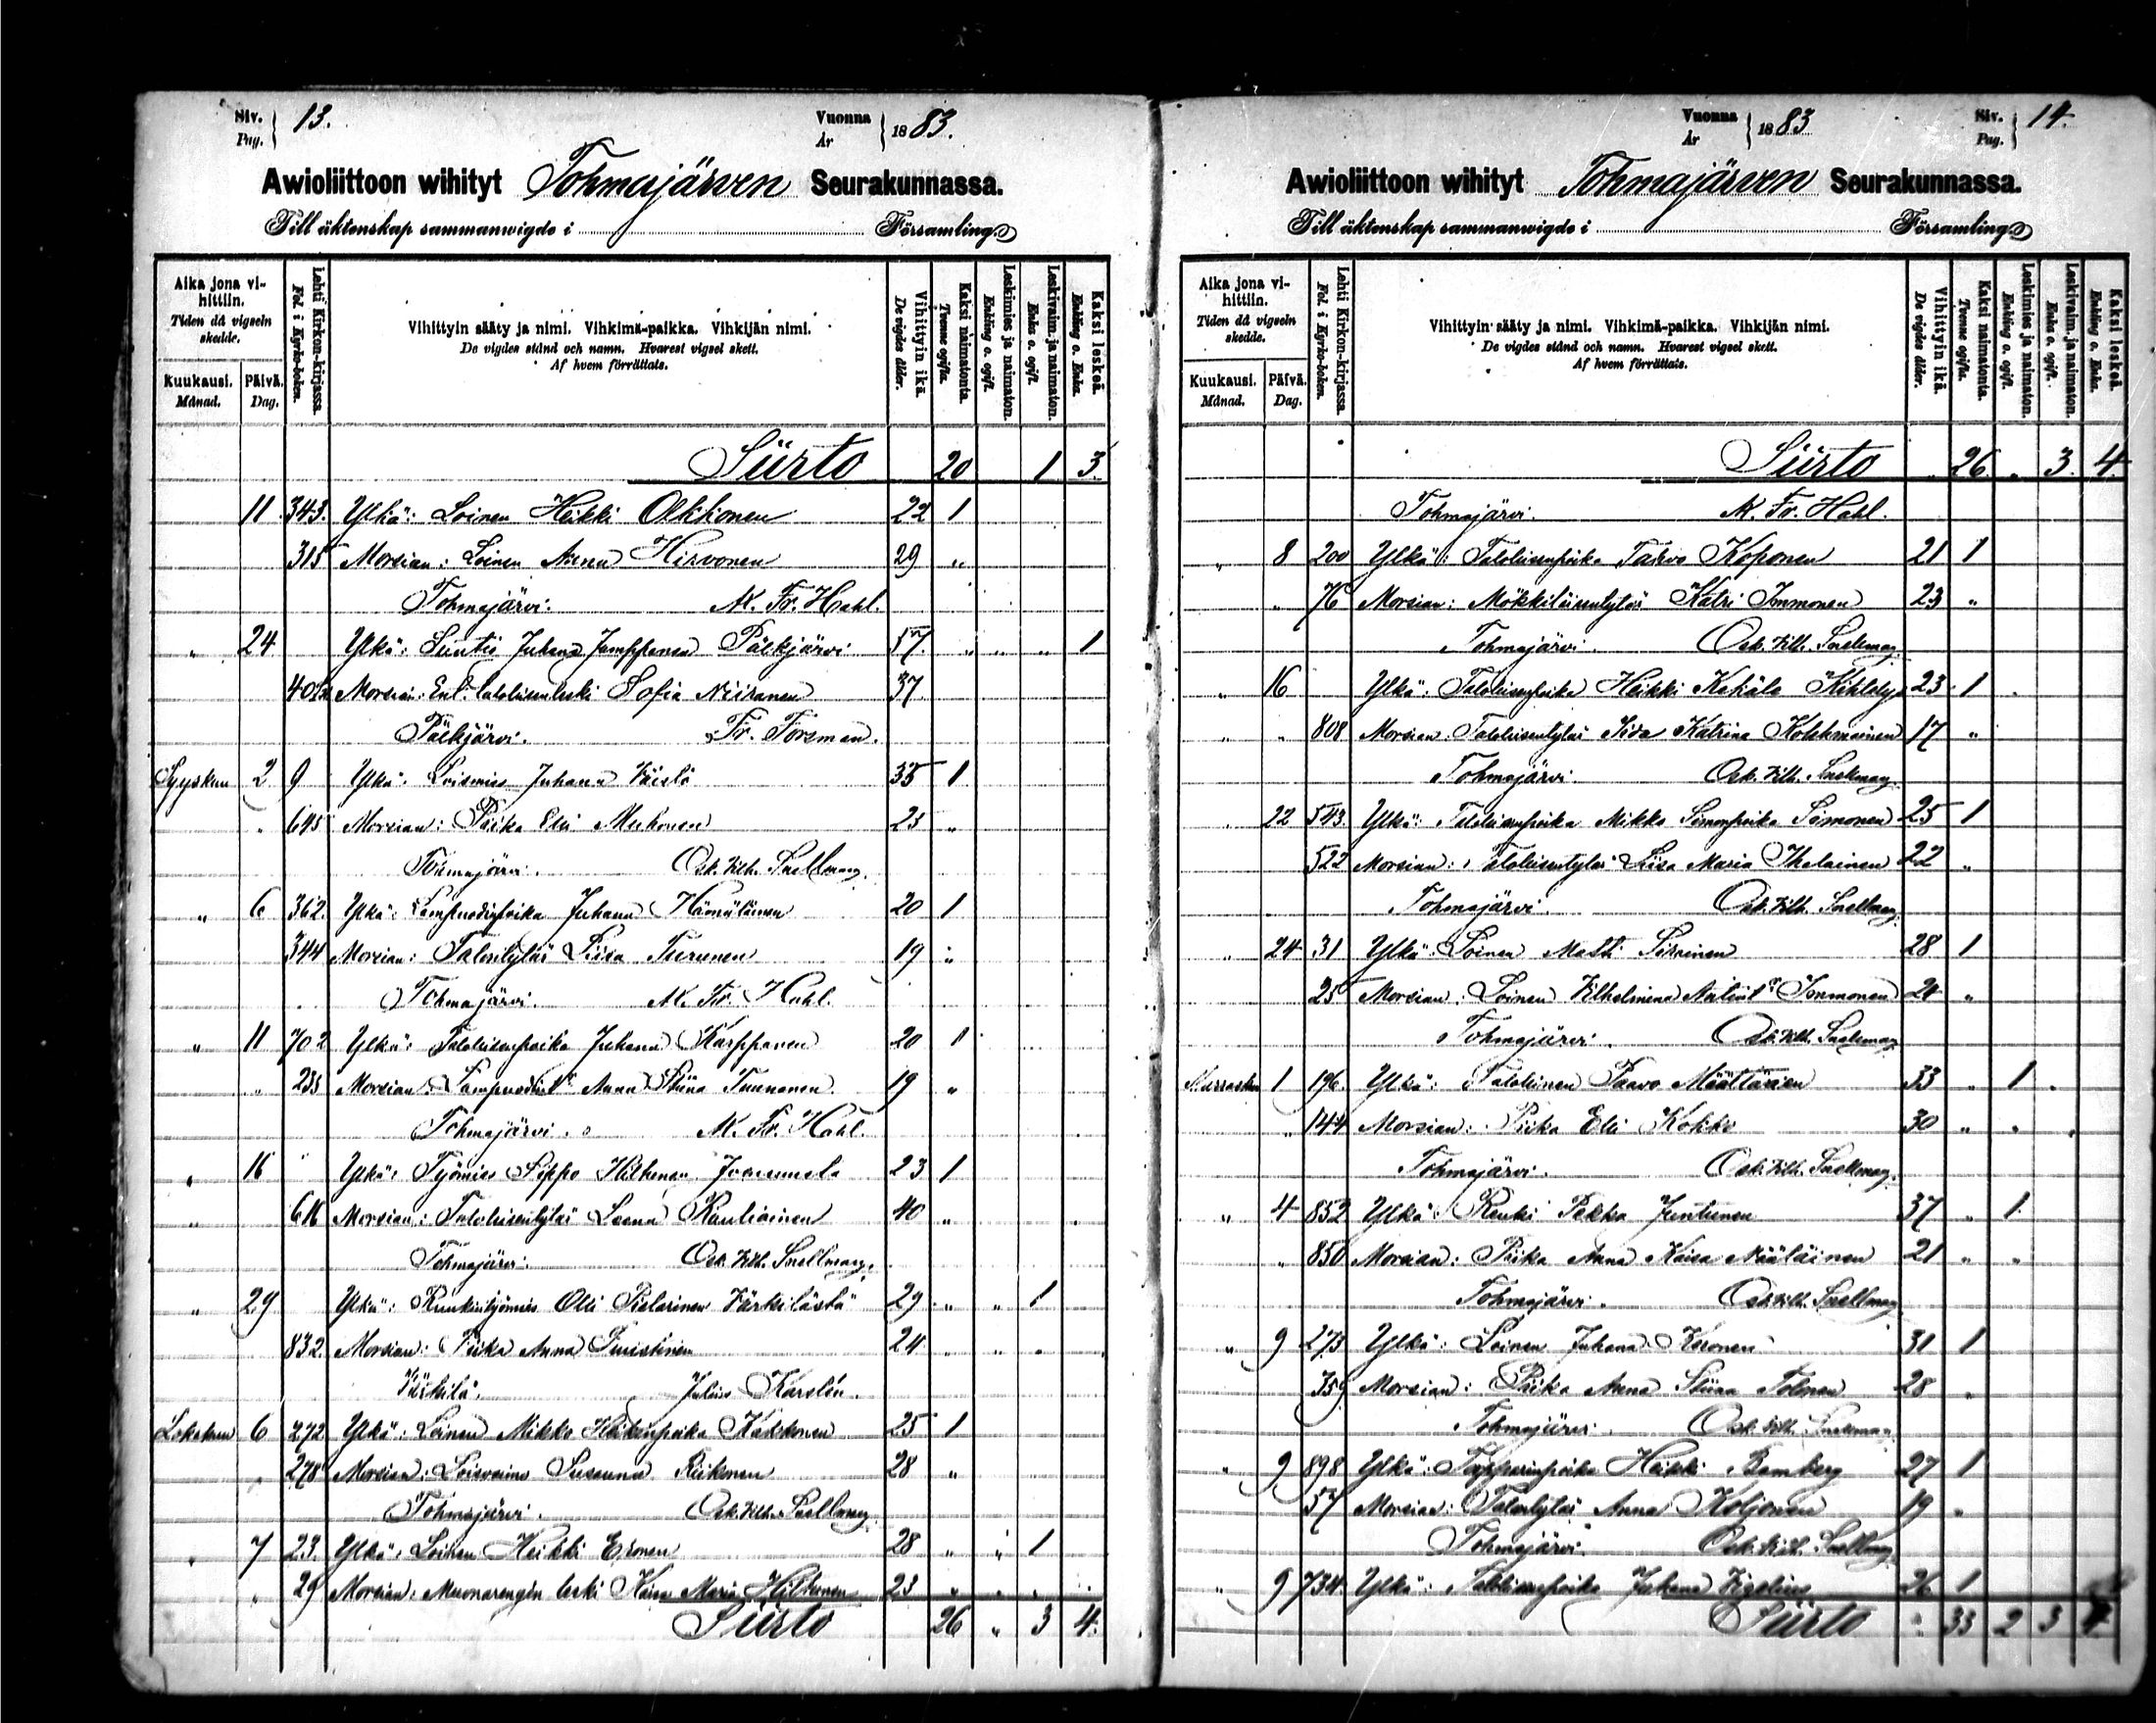 Siv.
Pag. 13.
Vuonna
År 1883.
Awioliittoon wihityt Tohmajärven Seurakunnassa.
Till äktenskap sammanwigde i Församling
Aika jona vihittiin.
Tiden då vigseln skedde.
Kuukausi.
Månad.
Päivä.
Dag.
Lehti Kirkon-kirjassa.
Fol. i Kyrko-boken.
Vihittyin sääty ja nimi. Vihkimä-paikka. Vihkijän nimi.
De vigdes stånd och namn. Hvarest vigsel skett.
Af hvem förrättats.
Vihittyin ikä.
De vigdes ålder.
Kaksi naimatonta.
Tvenne ogifta.
Leskimies ja naimaton.
Enkling o. ogift.
Leskivaim. ja naimaton.
Enka o. ogift.
Kaksi leskeä.
Enkling o. Enka.
Siirto 20 1 3
11 343. Ylkä: Loinen Heikki Okkonen 22 1
315 Morsian: Loinen Anna Hirvonen 29 "
Tohmajärvi. K. Fr. Hahl.
" 24 Ylkä: Suntio Juhana Jamppanen Pälkjärvi 57 " " " 1
Morsian: Ent. talollisenleski Sofia Niiranen 37
Pälkjärvi. Fr. Forsman.
Syyskuu 2 9 Ylkä: Loismies Juhana Väistö 35 1
" 645 Morsian: Piika Elli Muhonen 23 "
Tohmajärvi. Osk. Vilh. Snellman.
" 6 362. Ylkä: Lampuodinpoika Juhana Hämäläinen 20 1
344 Morsian: Talontytär Liisa Turunen 19 "
Tohmajärvi. K. Fr. Hahl.
" 11 702 Ylkä: Talollisenpoika Juhana Karppanen 20 1
" 233 Morsian: Anna Stiina Tunnanen 19 "
Tohmajärvi. K. Fr. Hahl.
" 16 Ylkä: Työmies Seppo 23 1
" 616 Morsian: Talollisentytär Leena Rautiainen 40 "
Tohmajärvi. Osk. Vilh. Snellman.
" 29 Ylkä: Olli Pielarinen Värtsilästä 29 " " 1
832. Morsian: Piika Anna 24 " " "
Värtsilä. Julius Karsten.
Lokakuu 6 272 Ylkä: Loinen Mikko Heikinpoika Kakkonen 25 1
" 278 Morsian: Loisvaimo Susanna Riikonen 28 "
Tohmajärvi. Osk. Vilh. Snellman.
" 7 23. Ylkä: Loinen Heikki Eronen 28 " " 1
" 29 Morsian: Muonarengin leski Kaisa Maria Hiltunen 23 " " "
Siirto 26 " 3 4.
Vuonna
År 1883
Siv.
Pag. 14.
Awioliittoon wihityt Tohmajärven Seurakunnassa.
Till äktenskap sammanwigde i Församling
Aika jona vihittiin.
Tiden då vigseln skedde.
Kuukausi.
Månad.
Päivä.
Dag.
Lehti Kirkon-kirjassa.
Fol. i Kyrko-boken.
Vihittyin sääty ja nimi. Vihkimä-paikka. Vihkijän nimi.
De vigdes stånd och namn. Hvarest vigsel skett.
Af hvem förrättats.
Vihittyin ikä.
De vigdes ålder.
Kaksi naimatonta.
Tvenne ogifta.
Leskimies ja naimaton.
Enkling o. ogift.
Leskivaim. ja naimaton.
Enka o. ogift.
Kaksi leskeä.
Enkling o. Enka.
Siirto 26 " 3. 4.
Tohmajärvi. K. Fr. Hahl.
" 8 200 Ylkä: Talollisenpoika Paavo Koponen 21 1
" 76 Morsian: Mökkiläisentytär Katri Immonen 23 "
Tohmajärvi. Osk. Vilh. Snellman.
" 16 Ylkä: Talollisenpoika Heikki 23 1
" " 808 Morsian: Talollisentytär Iida Katrina Kolehmainen 17 "
Tohmajärvi. Osk. Vilh. Snellman.
" 22 543. Ylkä: Talollisenpoika Mikko Simonpoika Simonen 25 1
522 Morsian: Talollisentytär Liisa Maria Ihalainen 22 "
Tohmajärvi. Osk. Vilh. Snellman.
" 24 31 Ylkä: Loinen Matti 28 1
25 Morsian: Loinen Vilhelmina Immonen 24 "
Tohmajärvi. Osk. Vilh. Snellman.
Marraskuu 1 196. Ylkä: Talollinen Paavo Määttänen 33 " 1
" 144 Morsian: Piika Elli Kokko 30 " "
Tohmajärvi. Osk. Vilh. Snellman.
" 4 852 Ylkä: Renki Pekka Juntunen 37 " 1
" 850 Morsian: Piika Anna Kaisa Nääläinen 21 " "
Tohmajärvi. Osk. Vilh. Snellman.
" 9 273 Ylkä: Loinen Juhana Keronen 31 1
759 Morsian: Piika Anna Stiina Tolonen 28 "
Tohmajärvi. Osk. Vilh. Snellman
" 9 898 Ylkä: Heikki Bamberg 27 1
57 Morsian: Talontytär Anna Koljonen 19 "
Tohmajärvi. Osk. Vilh. Snellman.
" 9 734. Ylkä: Talollisenpoika Juhana Vigelius 26 1
Siirto " 33 2 3 4